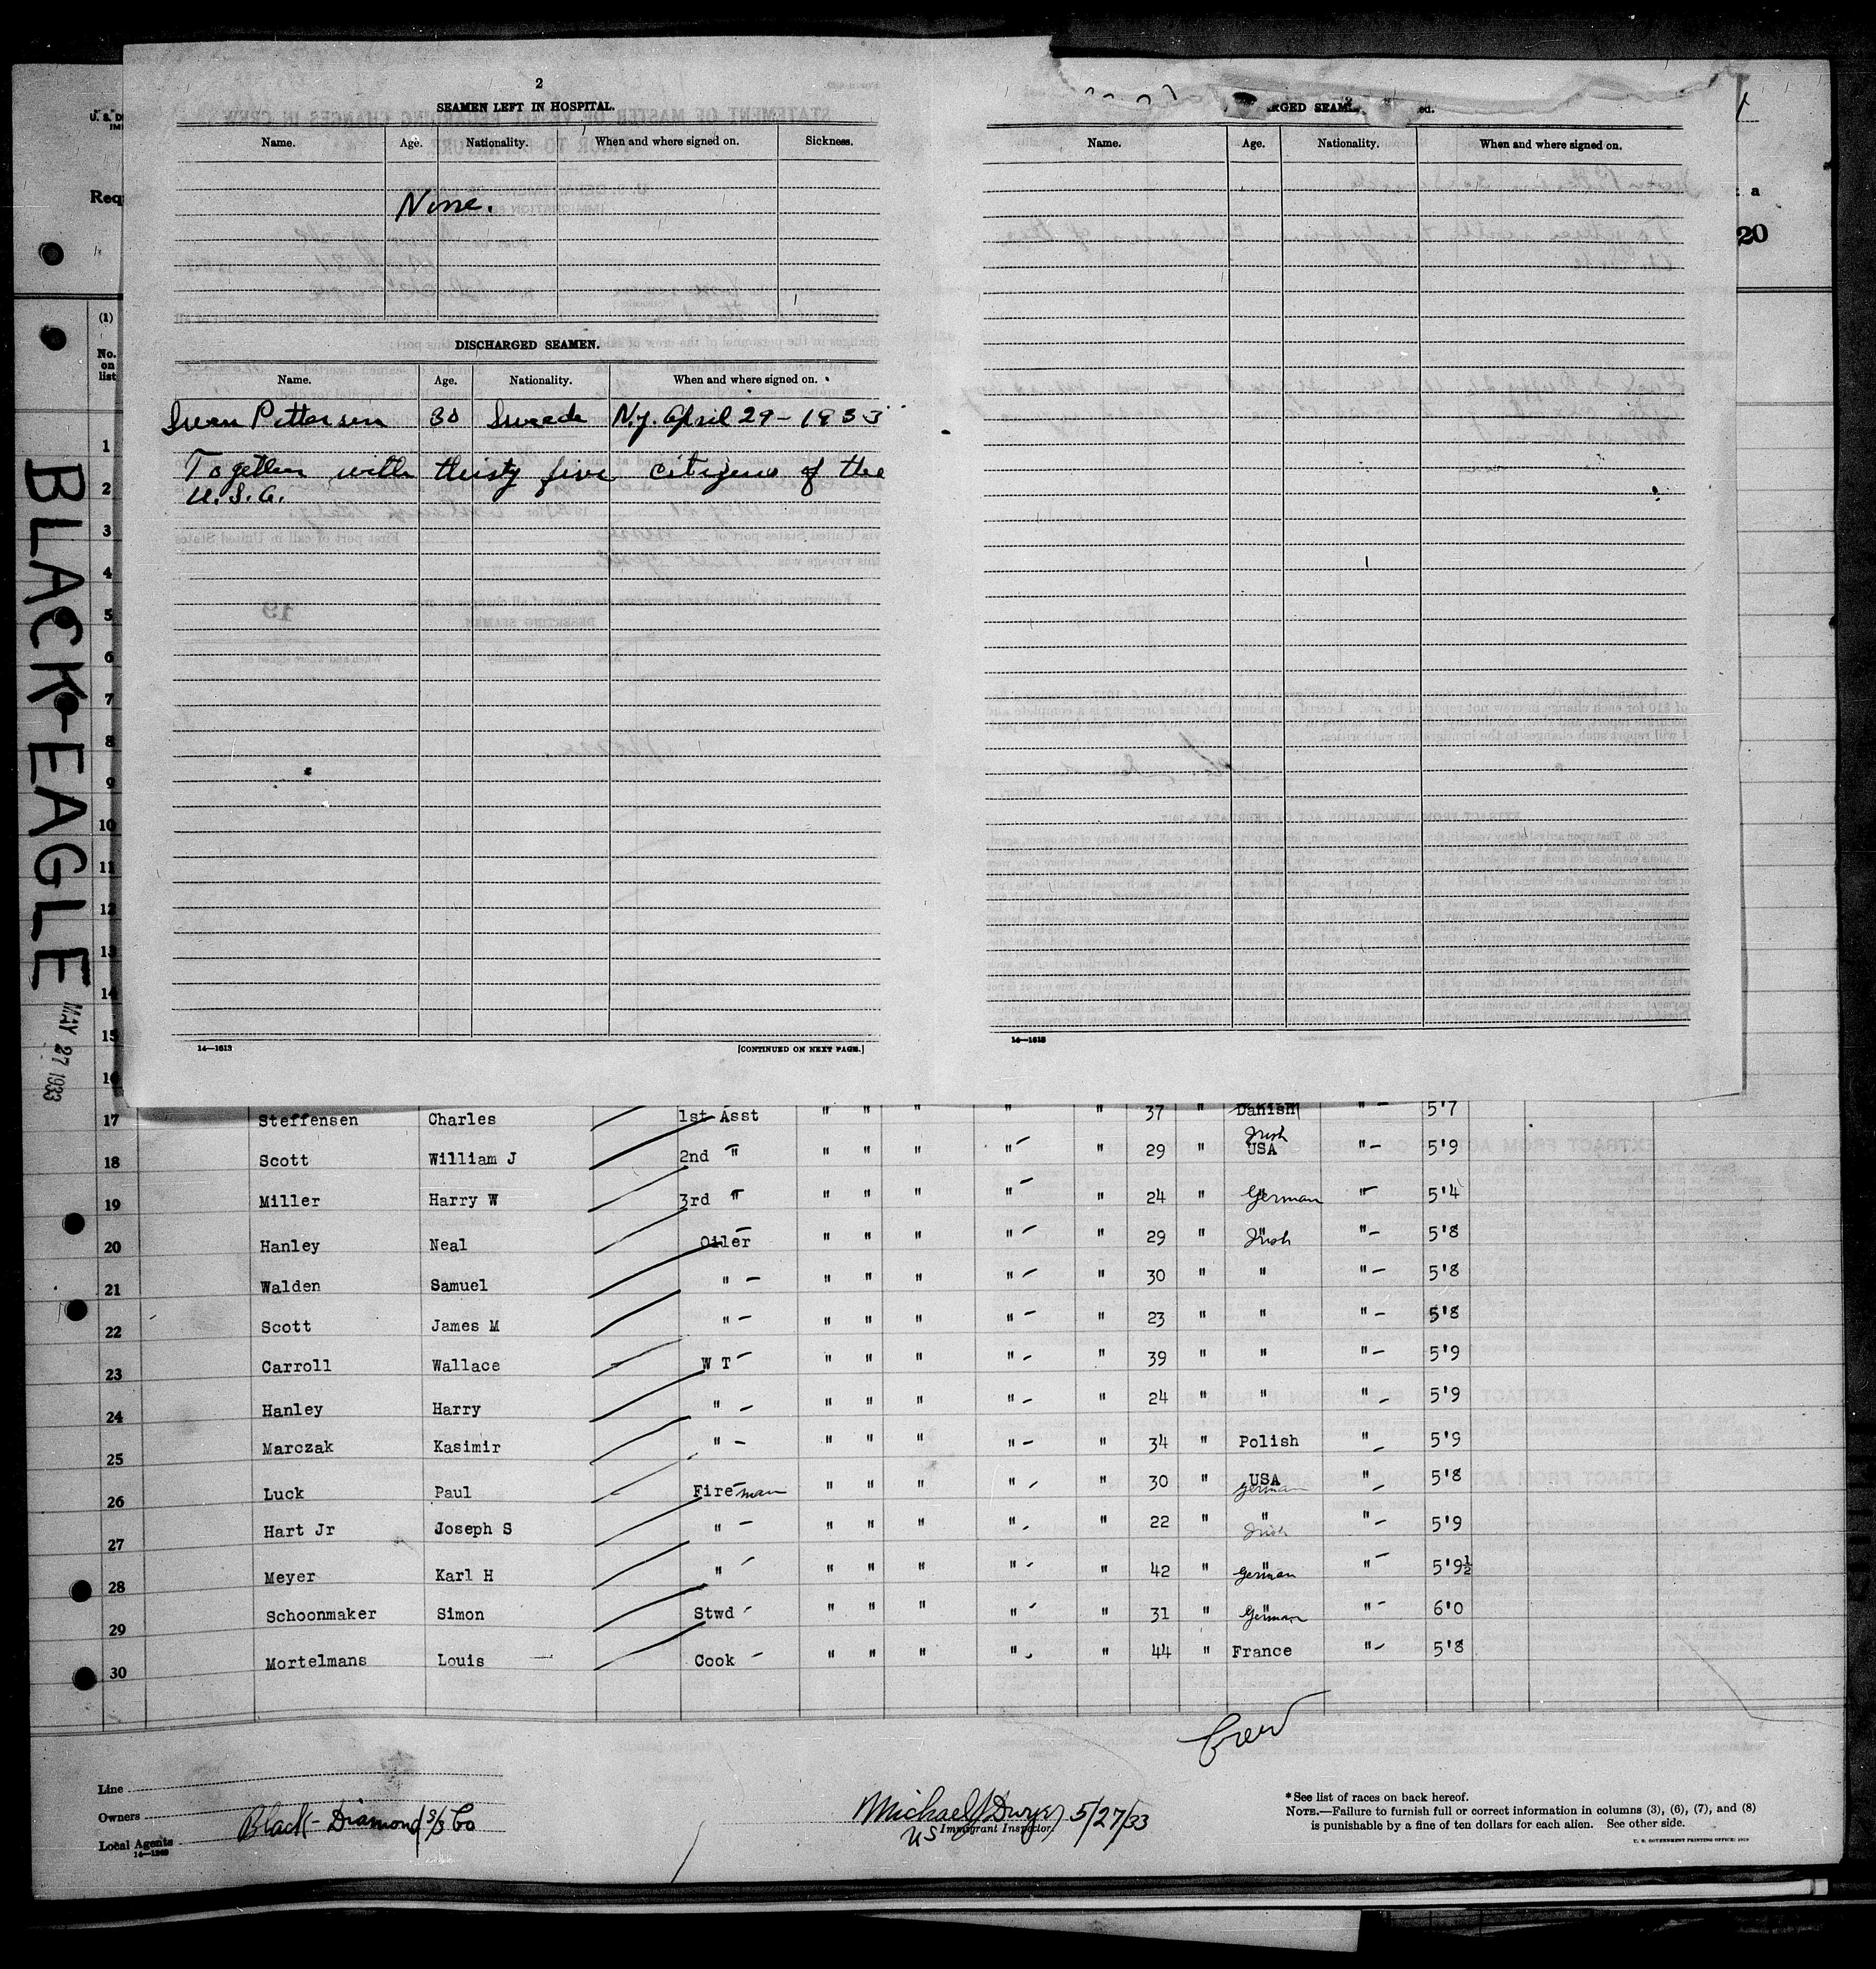 2
SEAMEN LEFT IN HOSPITAL.
Name. Age. Nationality. When and where signed on. Sickness.
None.
DISCHARGED SEAMEN.
Name. Age. Nationality. When and where signed on.
Swen Pettersen 30 Swede N.Y. April 29 - 1933
Together with thirty five citizens of the
U.S.A.
14—1613 [CONTINUED ON NEXT PAGE.]
Name. Age. Nationality. When and where signed on.
14—1613
Req
a
20
(1)
No. on list
1
2
3
4
5
6
7
8
9
10
11
12
13
14
15
16
BLACK-EAGLE
MAY 27 1933
17 Steffensen Charles 1st Asst " " " " " 37 " Danish " - 5'7
Irish
18 Scott William J 2nd " " " " " - " 29 " USA " - 5'9
19 Miller Harry W 3rd " " " " " - " 24 " German " - 5'4
20 Hanley Neal Oiler " " " " - " 29 " " Irish " - 5'8
21 Walden Samuel " - " " " " - " 30 " " " - 5'8
22 Scott James M " - " " " " - " 23 " " " - 5'8
23 Carroll Wallace W T - " " " " - " 39 " " " - 5'9
24 Hanley Harry " - " " " " - " 24 " " " - 5'9
25 Marczak Kasimir " - " " " " - " 34 " Polish " - 5'9
26 Luck Paul Fireman " " " " - " 30 " USA German " - 5'8
27 Hart Jr Joseph S " - " " " " - " 22 " " Irish " - 5'9
28 Meyer Karl H " - " " " " - " 42 " " German " - 5'9½
29 Schoonmaker Simon Stwd - " " " " - " 31 " " German " - 6'0
30 Mortelmans Louis Cook - " " " " - " 44 " France " - 5'8
Crew
Line
Owners
Black-Diamond S/S Co
Local Agents
14—1240
Michael J Dwyer 5/27/33
US Immigrant Inspector.
*See list of races on back hereof.
NOTE.—Failure to furnish full or correct information in columns (3), (6), (7), and (8)
is punishable by a fine of ten dollars for each alien. See other side.
U. S. GOVERNMENT PRINTING OFFICE: 1919